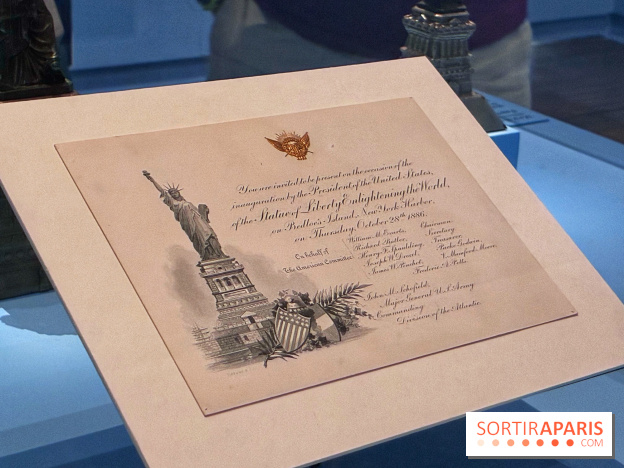 You are invited to be present on the occasion of the
inauguration by the President of the United States,
of the Statue of Liberty Enlightening the World,
on Bedloe's Island, New York Harbor,
on Thursday, October 28th 1886.
On behalf of
The American Committee
William M. Evarts, Chairman.
Richard Butler, Secretary
Henry F. Spaulding, Treasurer.
Joseph W. Drexel, Parke Godwin,
James W. Pinchot, V. Mumford Moore,
Frederic A. Potts.
John M. Schofield,
Major General U.S. Army
Commanding
Division of the Atlantic.
SORTIRAPARIS
.COM